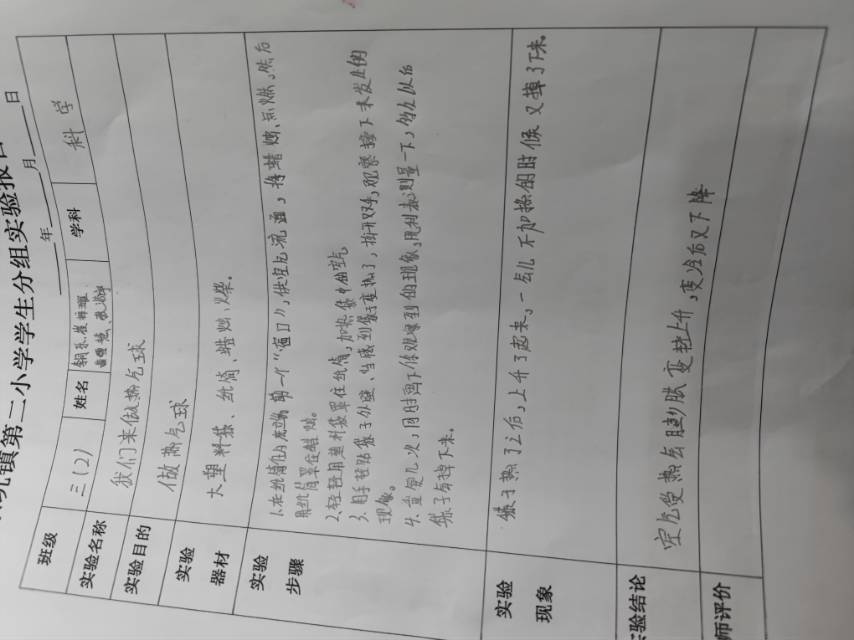 镇第二小学学生分组实验报告
年 月 日
班级 三(2) 姓名 学科 科学
实验名称 我们来做热气球
实验目的 做热气球
实验器材 大塑料袋、纸筒、蜡烛、火柴。
实验步骤
1.在纸筒的底端剪一个“洞口”,供空气流通,将蜡烛点燃,然后
用纸筒罩住蜡烛。
2、轻轻用塑料袋罩住纸筒,加热袋中的空气。
3、用手轻贴袋子外壁、当感到袋子变热了,松开双手,观察接下来发生的
现象。
4、重复几次,同时留下你观察到的现象,
袋子有掉下来。
实验现象 袋子热了之后,上升了起来,一会儿不加热的时候又掉了下来。
实验结论 空气受热会膨胀变轻上升,变冷后又下降
师评价